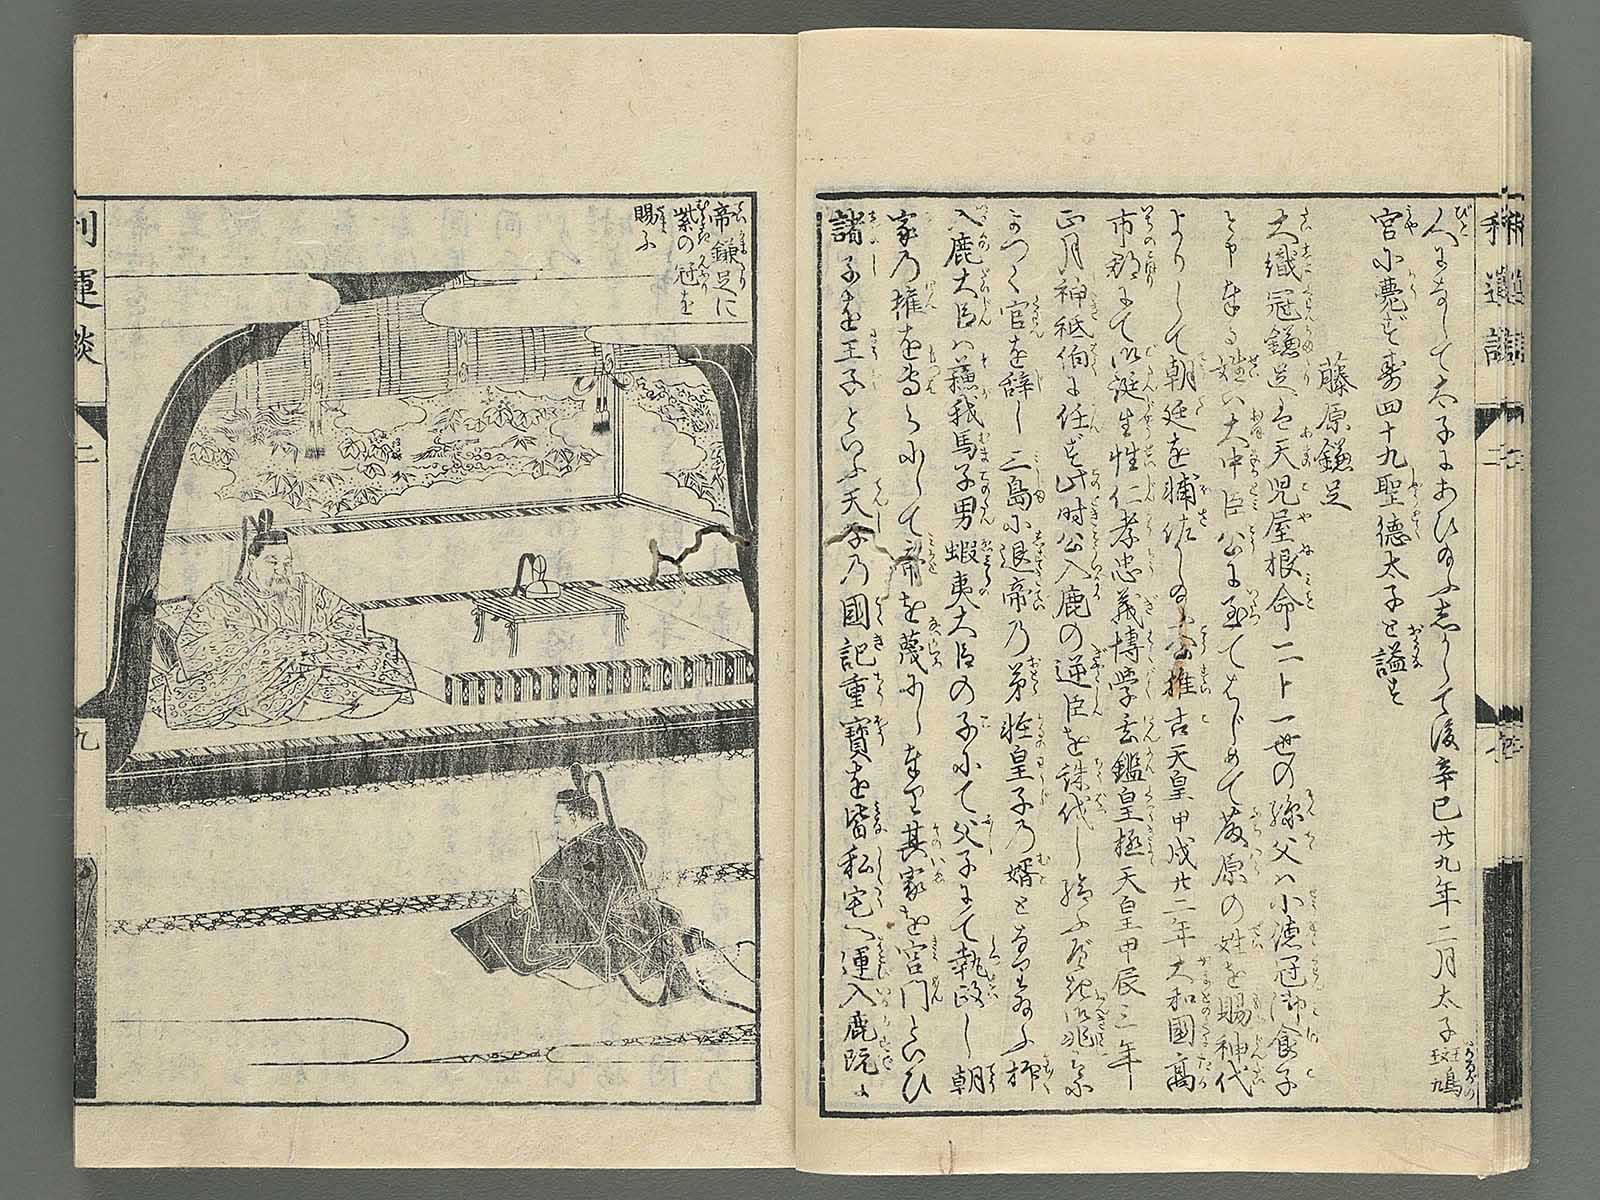 人となりて太子にあひ給ふしかして後辛巳廿九年二月太子斑鳩
宮に薨ず寿四十九聖徳太子と謚す
藤原鎌足
大織冠鎌足ハ天児屋根命二十一世の孫父ハ小徳冠御食子
と申奉る姓ハ大中臣公に至てはじめて藤原の姓を賜神代
よりして朝廷を補佐し給ふ推古天皇甲戌廿二年大和國高
市郡にて御誕生性仁孝忠義博学玄鑑皇極天皇甲辰三年
正月神祇伯に任ず此時公入鹿の逆臣を誅伐し給ふ
官を辞し三島に退帝の弟軽皇子の婿となり給ふ抑
入鹿大臣ハ蘇我馬子男蝦夷大臣の子にて父子にて執政し朝
家の権を専らにして帝を蔑にし奉り其家を宮門といひ
諸子を王子といふ天子の國記重寳を皆私宅へ運入鹿既に
帝鎌足に
紫の冠を
賜ふ
利運談
二
九